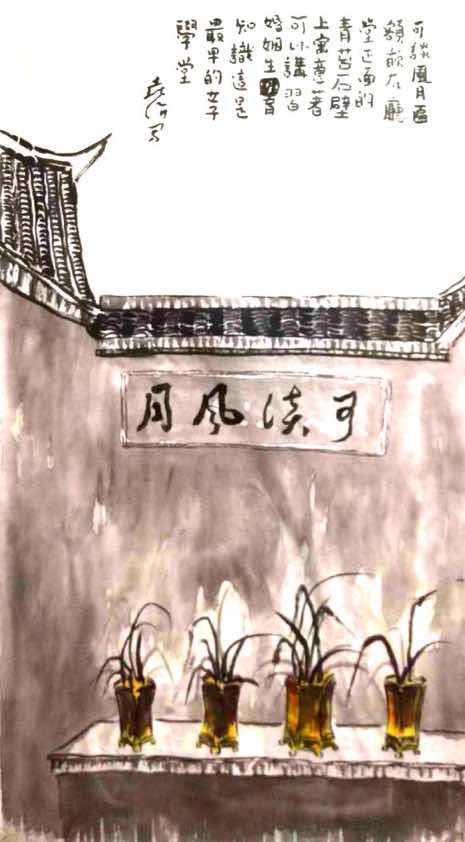 可談風月匾
額嵌在廳
堂正面的
青苔石壁
上寓意著
可以講習
婚姻生育
知識這是
最早的女子
學堂
写
可談风月